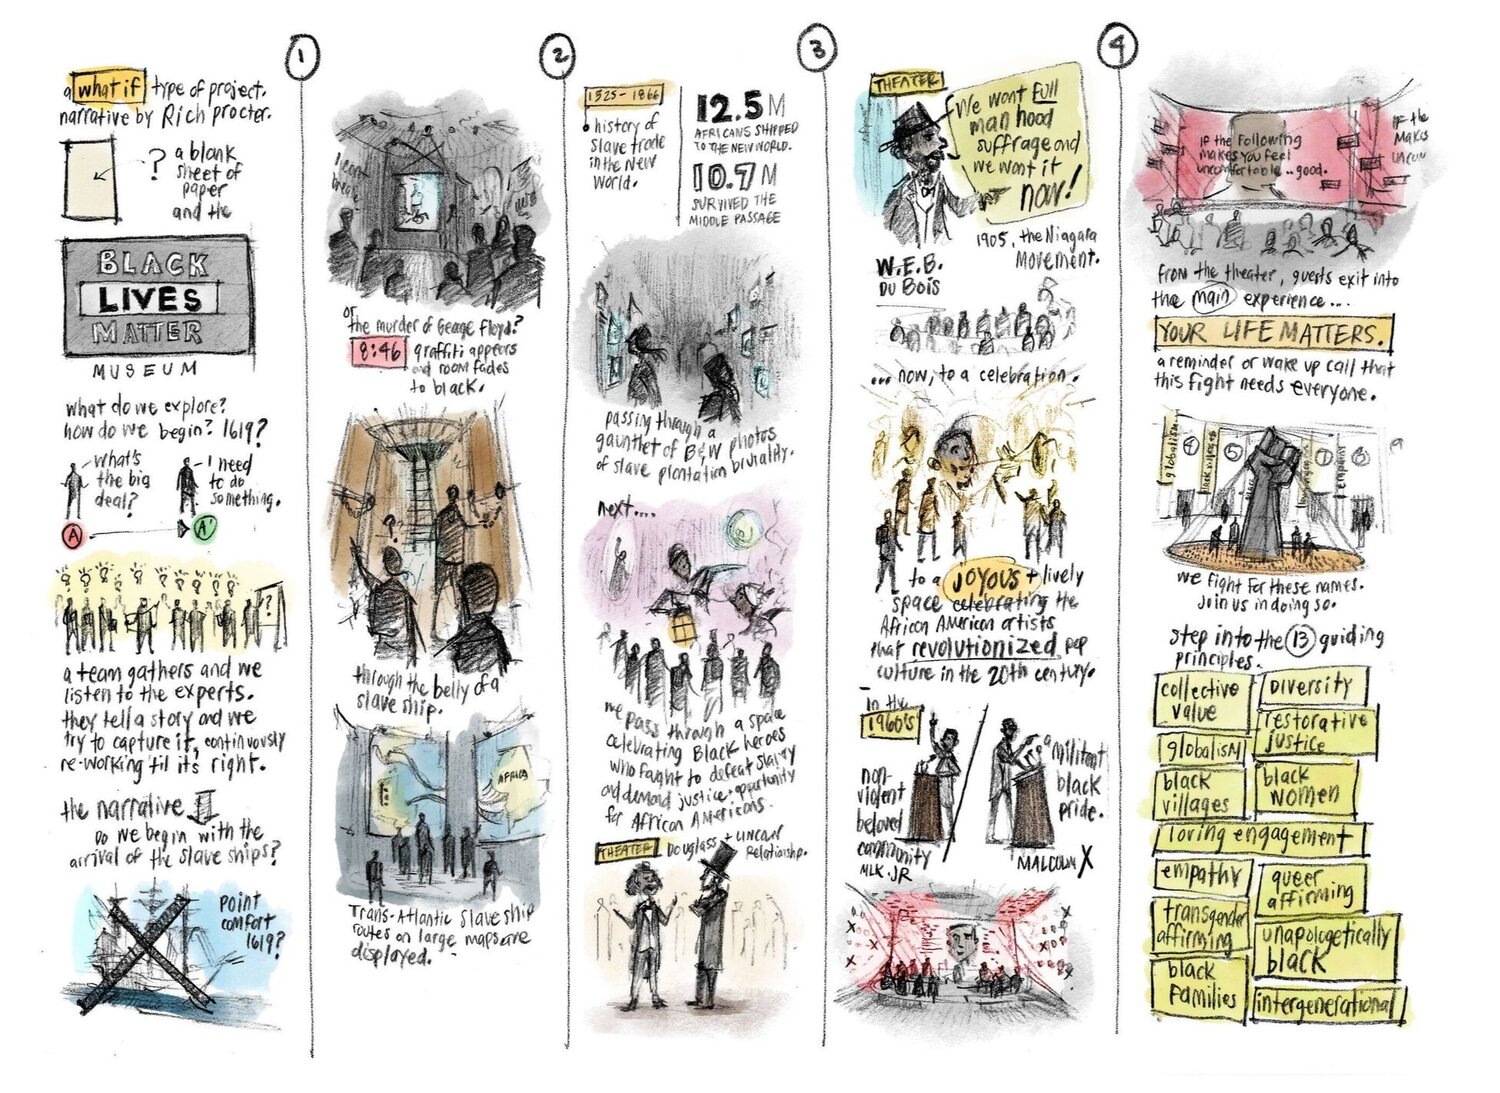 a what if type of project.
narrative by Rich Procter.
? a blank
sheet of
paper
and the
BLACK
LIVES
MATTER
MUSEUM
what do we explore?
how do we begin? 1619?
what's
the big
deal?
I need
to do
something.
A
A'
?
a team gathers and we
listen to the experts.
they tell a story and we
try to capture it, continuously
re-working 'til it's right.
the narrative
Do we begin with the
arrival of the slave ships?
point
comfort
1619?
1
I can't
breathe
or
the murder of George Floyd?
8:46 graffiti appears
and room fades
to black.
?
through the belly of a
slave ship.
AFRICA
Trans-Atlantic slave ship
routes on large maps are
displayed.
2
1525-1866
history of
slave trade
in the New
World.
12.5M
AFRICANS SHIPPED
TO THE NEW WORLD.
10.7M
SURVIVED THE
MIDDLE PASSAGE
passing through a
gauntlet of B&W photos
of slave plantation brutality.
next....
we pass through a space
celebrating Black heroes
who fought to defeat slavery
and demand justice + opportunity
for African Americans.
THEATER Douglass + Lincoln
Relationship.
3
THEATER
We want full
man hood
suffrage and
we want it
now!
1905, the Niagara
Movement.
W.E.B.
DU BOIS
... now, to a celebration.
to a JOYOUS + lively
space celebrating the
African American artists
that revolutionized pop
culture in the 20th century.
in the
1960's
non-
violent
beloved
community
MLK. JR
a militant
black
pride.
MALCOLM X
4
If the Following
makes you feel
uncomfortable.. good.
IF the
MAKES
UNCOM
from the theater, guests exit into
the main experience...
YOUR LIFE MATTERS.
a reminder or wake up call that
this fight needs everyone.
globalism
4
5
7
8
empathy
we fight for these names.
Join us in doing so.
step into the 13 guiding
principles.
collective
value
DIVERSITY
restorative
justice
globalism
black
villages
black
WOMEN
loving engagement
empathy
queer
affirming
transgender
affirming
unapologetically
black
black
Families
intergenerational